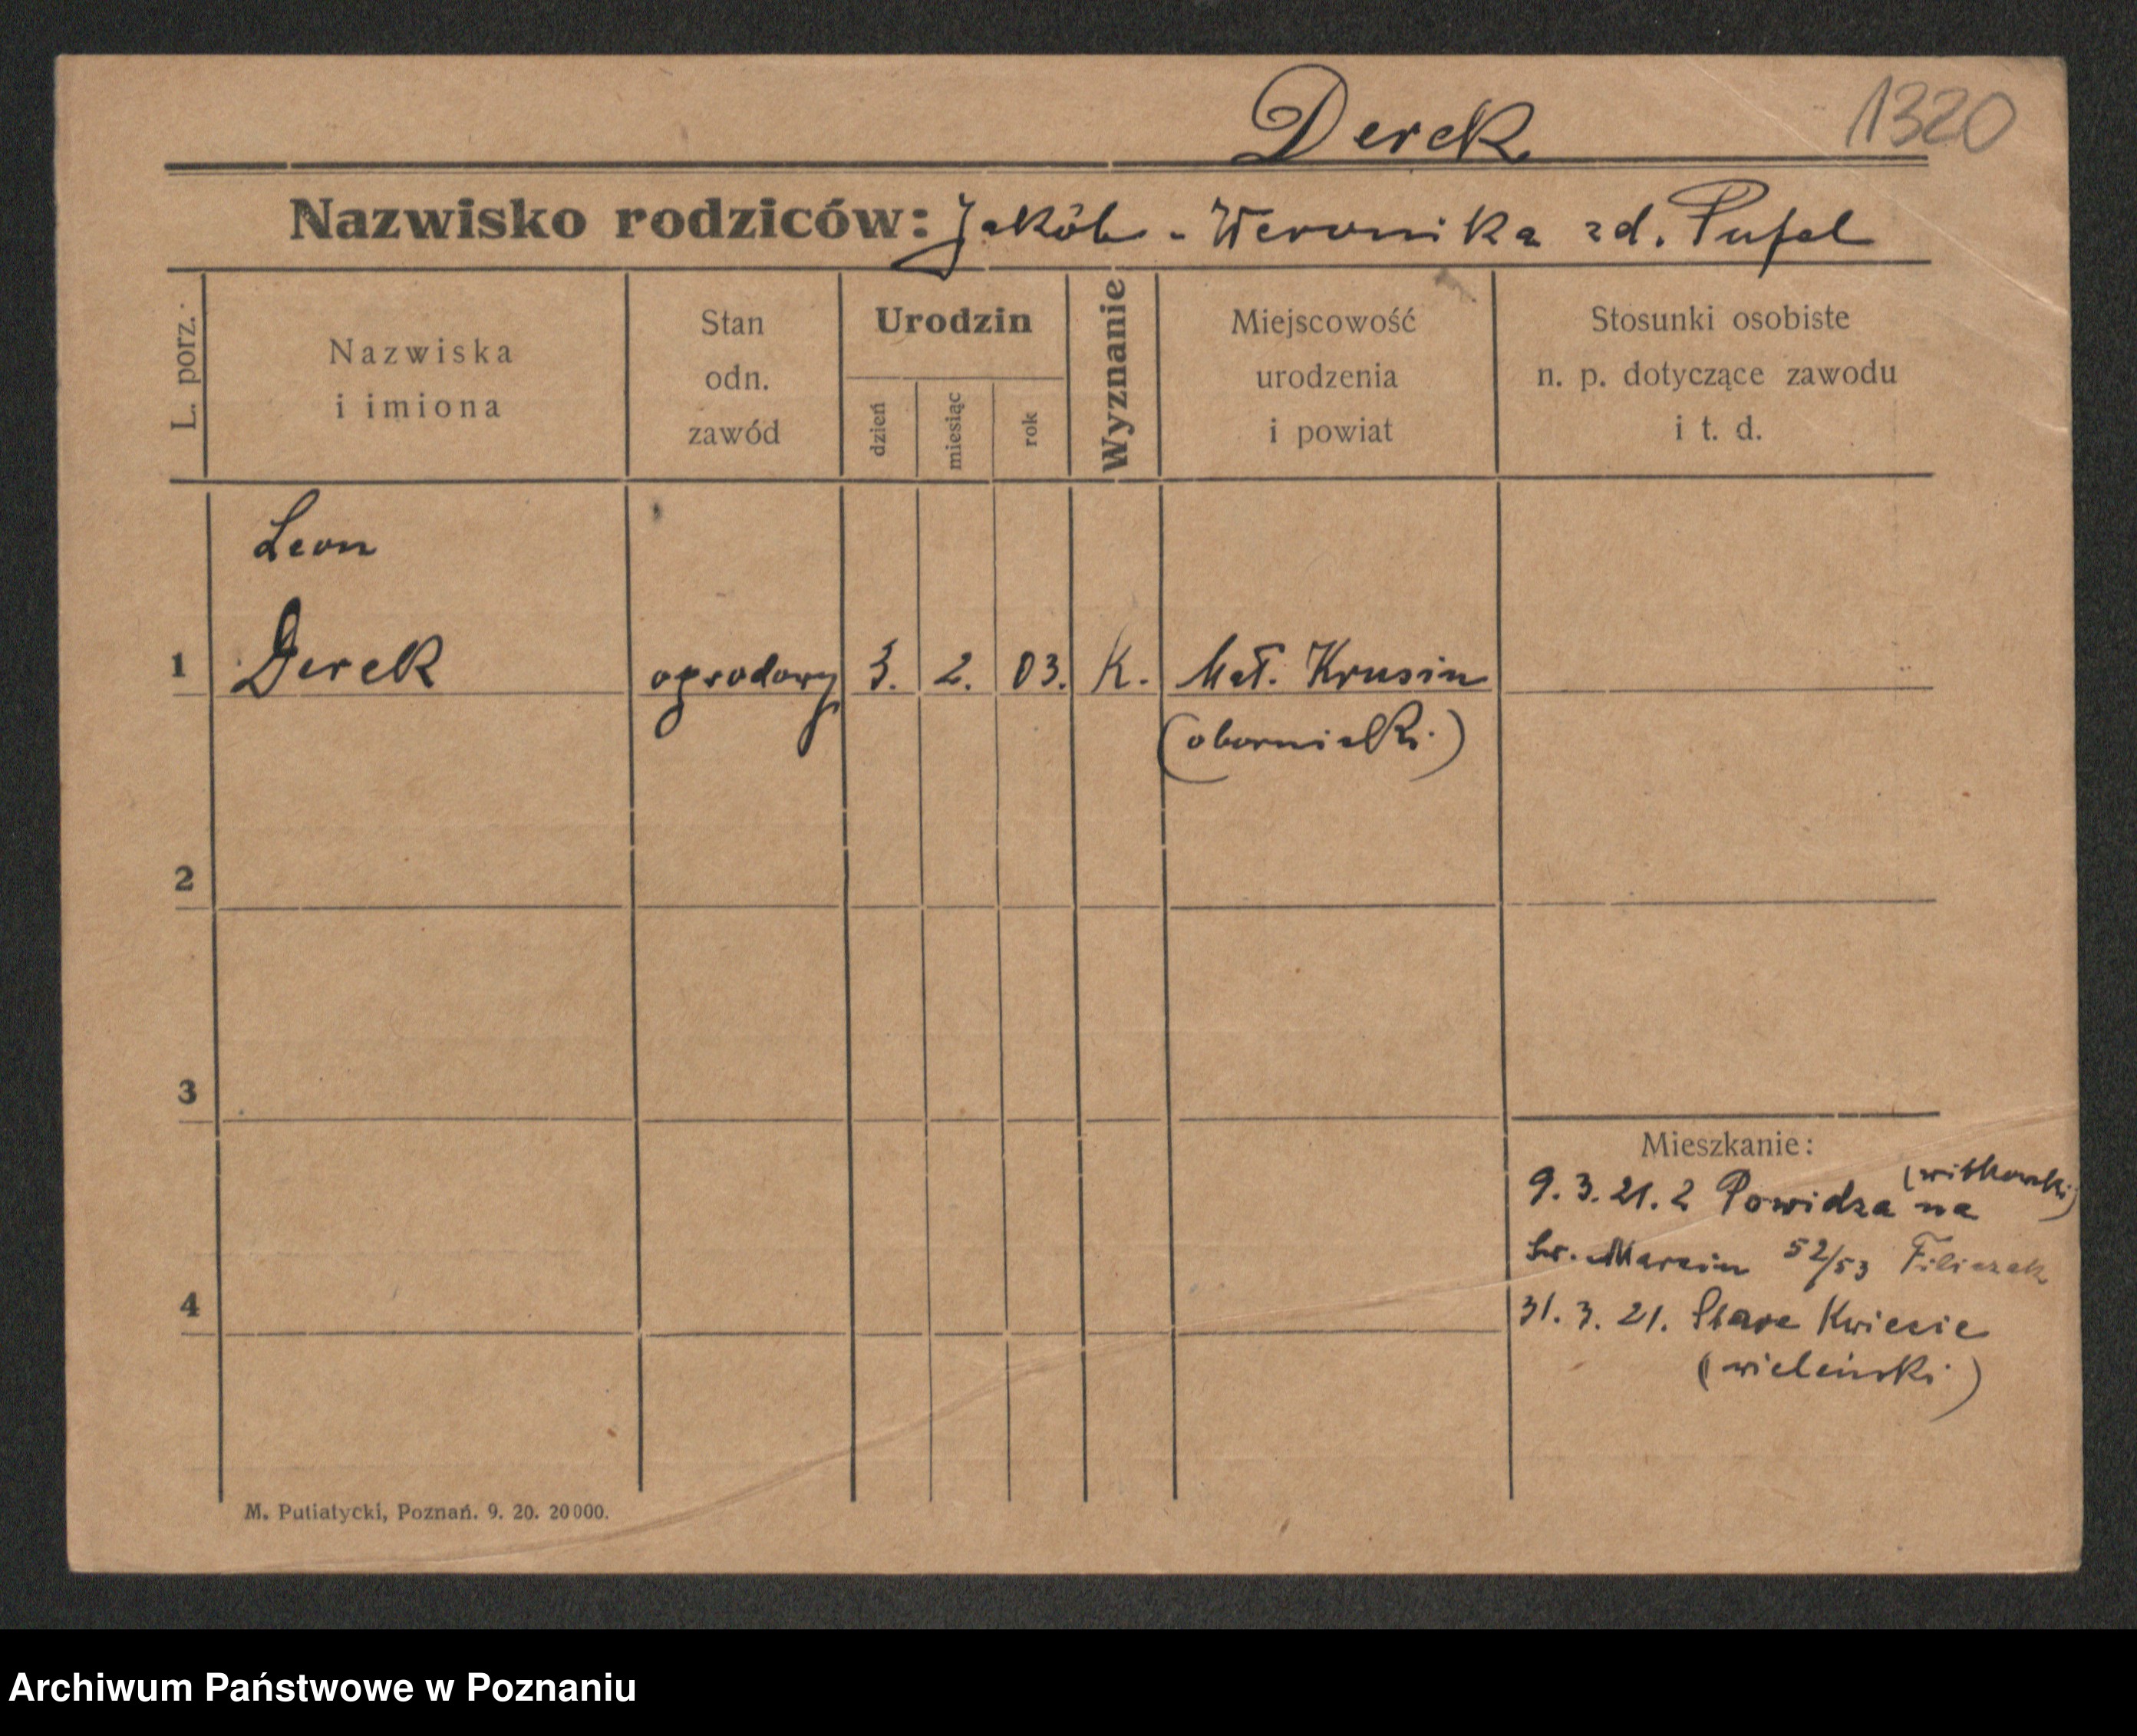 Derek 1320
Nazwisko rodziców: Jakób - Weronika zd. Pufal
L. porz.
Nazwiska
i imiona
Stan
odn.
zawód
Urodzin
dzień
miesiąc
rok
Wyznanie
Miejscowość
urodzenia
i powiat
Stosunki osobiste
n. p. dotyczące zawodu
i t. d.
Leon
1 Derek ogrodowy 3. 2. 03. K. Krusin
(obornicki)
2
3
Mieszkanie:
(witkowski)
9. 3. 21. z Powidza na
św. Marcin 52/53 Filiczak
4
31. 3. 21. Stare Kwiecie
(wieleński)
M. Putiatycki, Poznań. 9. 20. 20000.
Archiwum Państwowe w Poznaniu